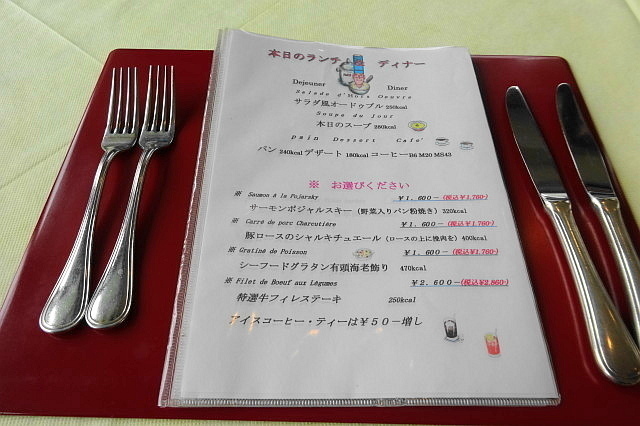 本日のランチ ディナー
Dejeuner Diner
Salade d'Hors Oeuvre
サラダ風オードゥブル 250kcal
Soupe du jour
本日のスープ 280kcal
pain Dessert Cafe'
パン 240kcal デザート 180kcal コーヒーB6 M20 MS43
※ お選びください
※ Saumon à la Pojarsky ￥1.600－(税込￥1,760-)
サーモンポジャルスキー（野菜入りパン粉焼き）320kcal
※ Carré de porc Charcutière ￥1.600－(税込￥1,760-)
豚ロースのシャルキチュエール（ロースの上に挽肉を）400kcal
※ Gratiné de Poisson ￥1.600－(税込￥1,760-)
シーフードグラタン有頭海老飾り 470kcal
※ Filet de Boeuf aux Légumes ￥2.600－(税込￥2,860-)
特選牛フィレステーキ 250kcal
アイスコーヒー・ティーは￥５０－増し